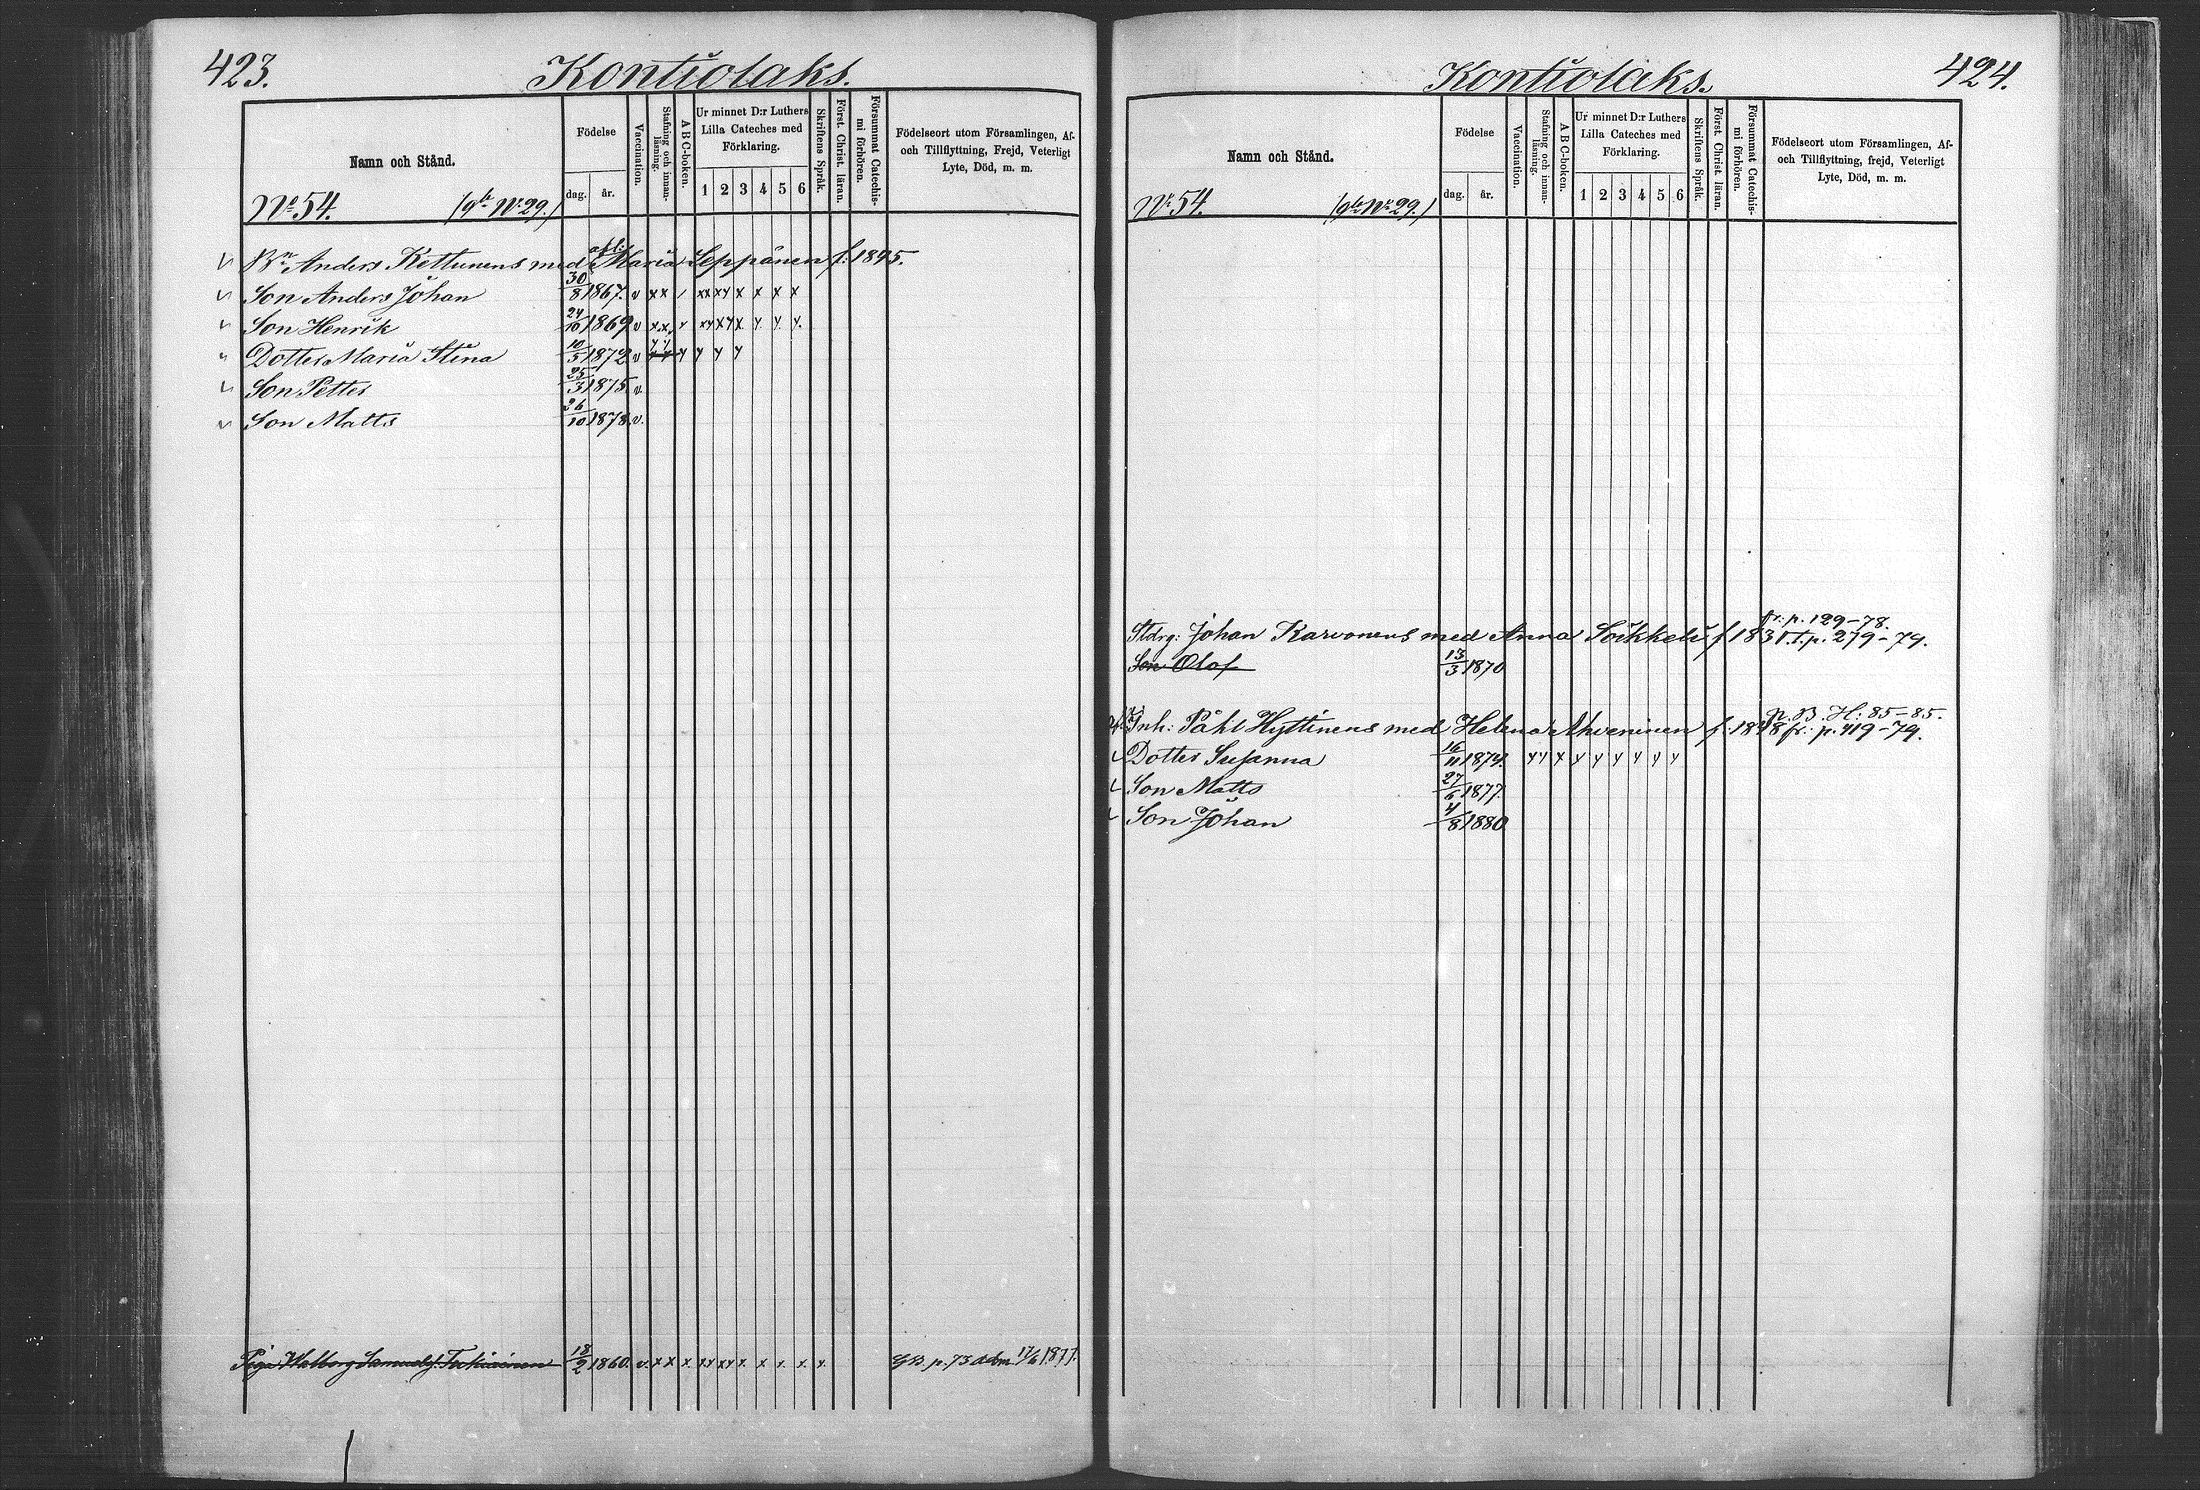 423.
Kontiolaks.
Namn och Stånd.
Födelse
dag. år.
Vaccination.
Stafning och innanläsning.
A B C-boken.
Ur minnet D:r Luthers
Lilla Cateches med
Förklaring.
1 2 3 4 5 6
Skriftens Språk.
Först. Christ. läran.
Försummat Catechismi förhören.
Födelseort utom Församlingen, Af-
och Tillflyttning, Frejd, Veterligt
Lyte, Död, m. m.
No. 54. (gle No. 29.)
Bn Anders Kettunens med afl: Maria Seppänen f. 1895.
Son Anders Johan 30/8 1867. v x x / xx xy x x x x
Son Henrik 24/10 1869 v x x x xy xy x y y y
Dotter Maria Stina 10/5 1872. v y y y y y y
Son Petter 25/3 1875. v
Son Matts 26/10 1878. v.
Piga Walborg Samuelsf. Turkiainen 18/2 1860. v. x x x. xy xy x. x x. x. x. GB p. 73 adm 17/6 1877.
424.
Kontiolaks.
Namn och Stånd.
Födelse
dag. år.
Vaccination.
Stafning och innanläsning.
A B C-boken.
Ur minnet D:r Luthers
Lilla Cateches med
Förklaring.
1 2 3 4 5 6
Skriftens Språk.
Först. Christ. läran.
Försummat Catechismi förhören.
Födelseort utom Församlingen, Af-
och Tillflyttning, frejd, Veterligt
Lyte, Död, m. m.
No. 54. (gle No. 29.)
fr: p. 129-78.
Stdrg: Johan Karvonens med Anna Soikkeli f 1831 t. p. 279-79.
Son Olof 13/3 1870
p. B. H: 85-85.
Inh: Påhl Hyttinens med Helena Ahveninen f: 1848 fr: p. 419-79.
Dotter Susanna 16/11 1874. y y x y y y y y y
Son Matts 27/6 1877.
Son Johan 4/8 1880